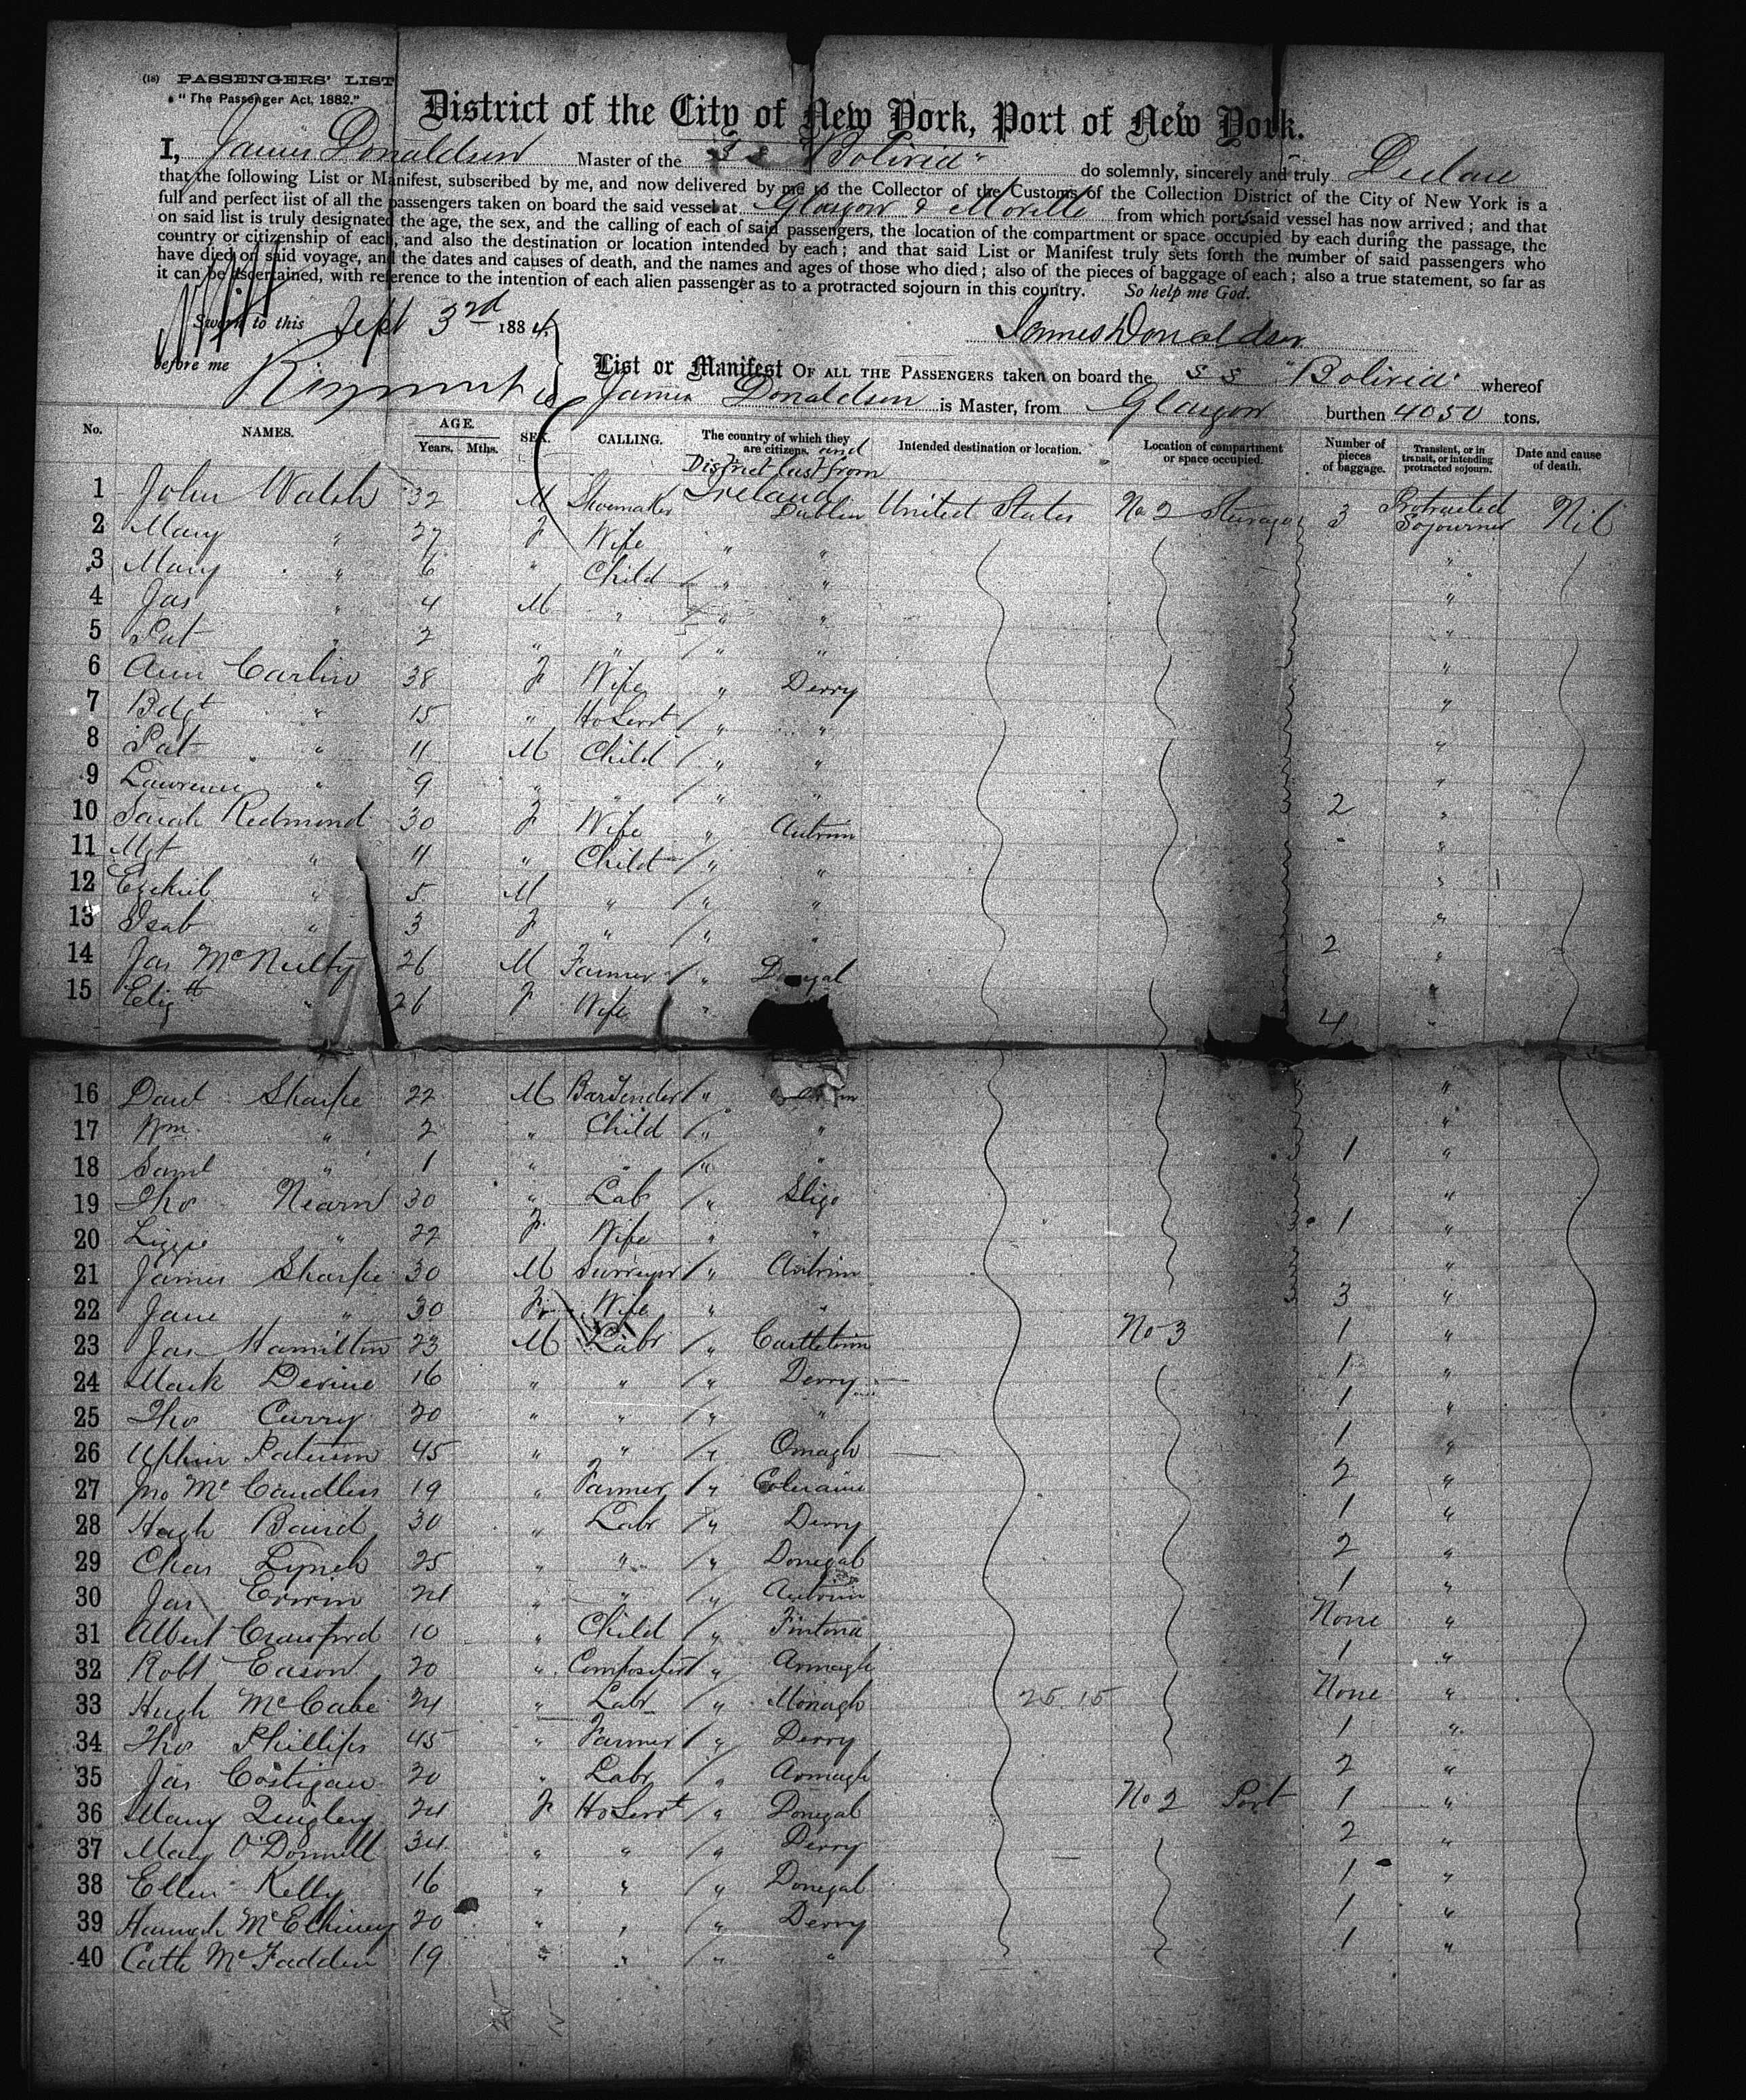 (18) PASSENGERS' LIST
"The Passenger Act, 1882."
District of the City of New York, Port of New York.
I, James Donaldson Master of the S S "Bolivia" do solemnly, sincerely and truly Declare
that the following List or Manifest, subscribed by me, and now delivered by me to the Collector of the Customs of the Collection District of the City of New York is a
full and perfect list of all the passengers taken on board the said vessel at Glasgow & Moville from which port said vessel has now arrived; and that
on said list is truly designated the age, the sex, and the calling of each of said passengers, the location of the compartment or space occupied by each during the passage, the
country or citizenship of each, and also the destination or location intended by each; and that said List or Manifest truly sets forth the number of said passengers who
have died on said voyage, and the dates and causes of death, and the names and ages of those who died; also of the pieces of baggage of each; also a true statement, so far as
it can be ascertained, with reference to the intention of each alien passenger as to a protracted sojourn in this country. So help me God.
Sworn to this Sept 3rd 1884
James Donaldson
before me
List or Manifest OF ALL THE PASSENGERS taken on board the S S "Bolivia" whereof
James Donaldson is Master, from Glasgow burthen 4050 tons.
No. NAMES. AGE. Years. Mths. SEX. CALLING. The country of which they are citizens. and District last from Intended destination or location. Location of compartment or space occupied. Number of pieces of baggage. Transient, or in transit, or intending protracted sojourn. Date and cause of death.
1 John Walsh 32 M Shoemaker Ireland Dublin United States No 2 Steerage 3 Protracted Sojourner Nil
2 Mary " 27 F Wife " " "
3 Mary " 6 " Child " " "
4 Jas " 4 M " " " "
5 Pat " 2 " " " " "
6 Ann Carlin 38 F Wife " Derry "
7 Bdgt " 15 " Ho Servt " " "
8 Pat " 11 M Child " " "
9 Lawrence " 9 " " " " 2 "
10 Sarah Redmond 30 F Wife " Antrim "
11 Mgt " 11 " Child " " "
12 Ezekiel " 5 M " " " "
13 Isab " 3 F " " " 2 "
14 Jas McNulty 26 M Farmer " Donegal "
15 Elizth " 26 F Wife " 4 "
16 Davd Sharpe 22 M BarTender " "
17 Wm " 2 " Child " " "
18 Saml " 1 " " " " 1 "
19 Tho Nearn 30 " Lab " Sligo "
20 Lizzie " 22 F Wife " " 1 "
21 James Sharpe 30 M Surveyor " Antrim "
22 Jane " 30 F Wife " " 3 "
23 Jas Hamilton 23 M Labr " Castletown No 3 1 "
24 Mark Devine 16 " " " Derry 1 "
25 Tho Curry 20 " " " " 1 "
26 Paterson 45 " " " Omagh 1 "
27 Jno McCandless 19 " Farmer " Coleraine 2 "
28 Hugh Baird 30 " Labr " Derry 1 "
29 Chas Lynch 25 " " " Donegal 2 "
30 Jas Erwin 24 " " " Antrim 1 "
31 Albert Crawford 10 " Child " Fintona None "
32 Robt Eason 20 " Compositor " Armagh 1 "
33 Hugh McCabe 24 " Labr " Monagh 25 15 None "
34 Tho Phillips 45 " Farmer " Derry 1 "
35 Jas Costigan 20 " Labr " Armagh 2 "
36 Mary Quigley 24 F Ho Servt " Donegal No 2 Port 1 "
37 Mary O'Donnell 34 " " " Derry 2 "
38 Ellen Kelly 16 " " " Donegal 1 "
39 Hannah McElhinney 20 " " " Derry 1 "
40 Cath McFadden 19 " " " " 1 "